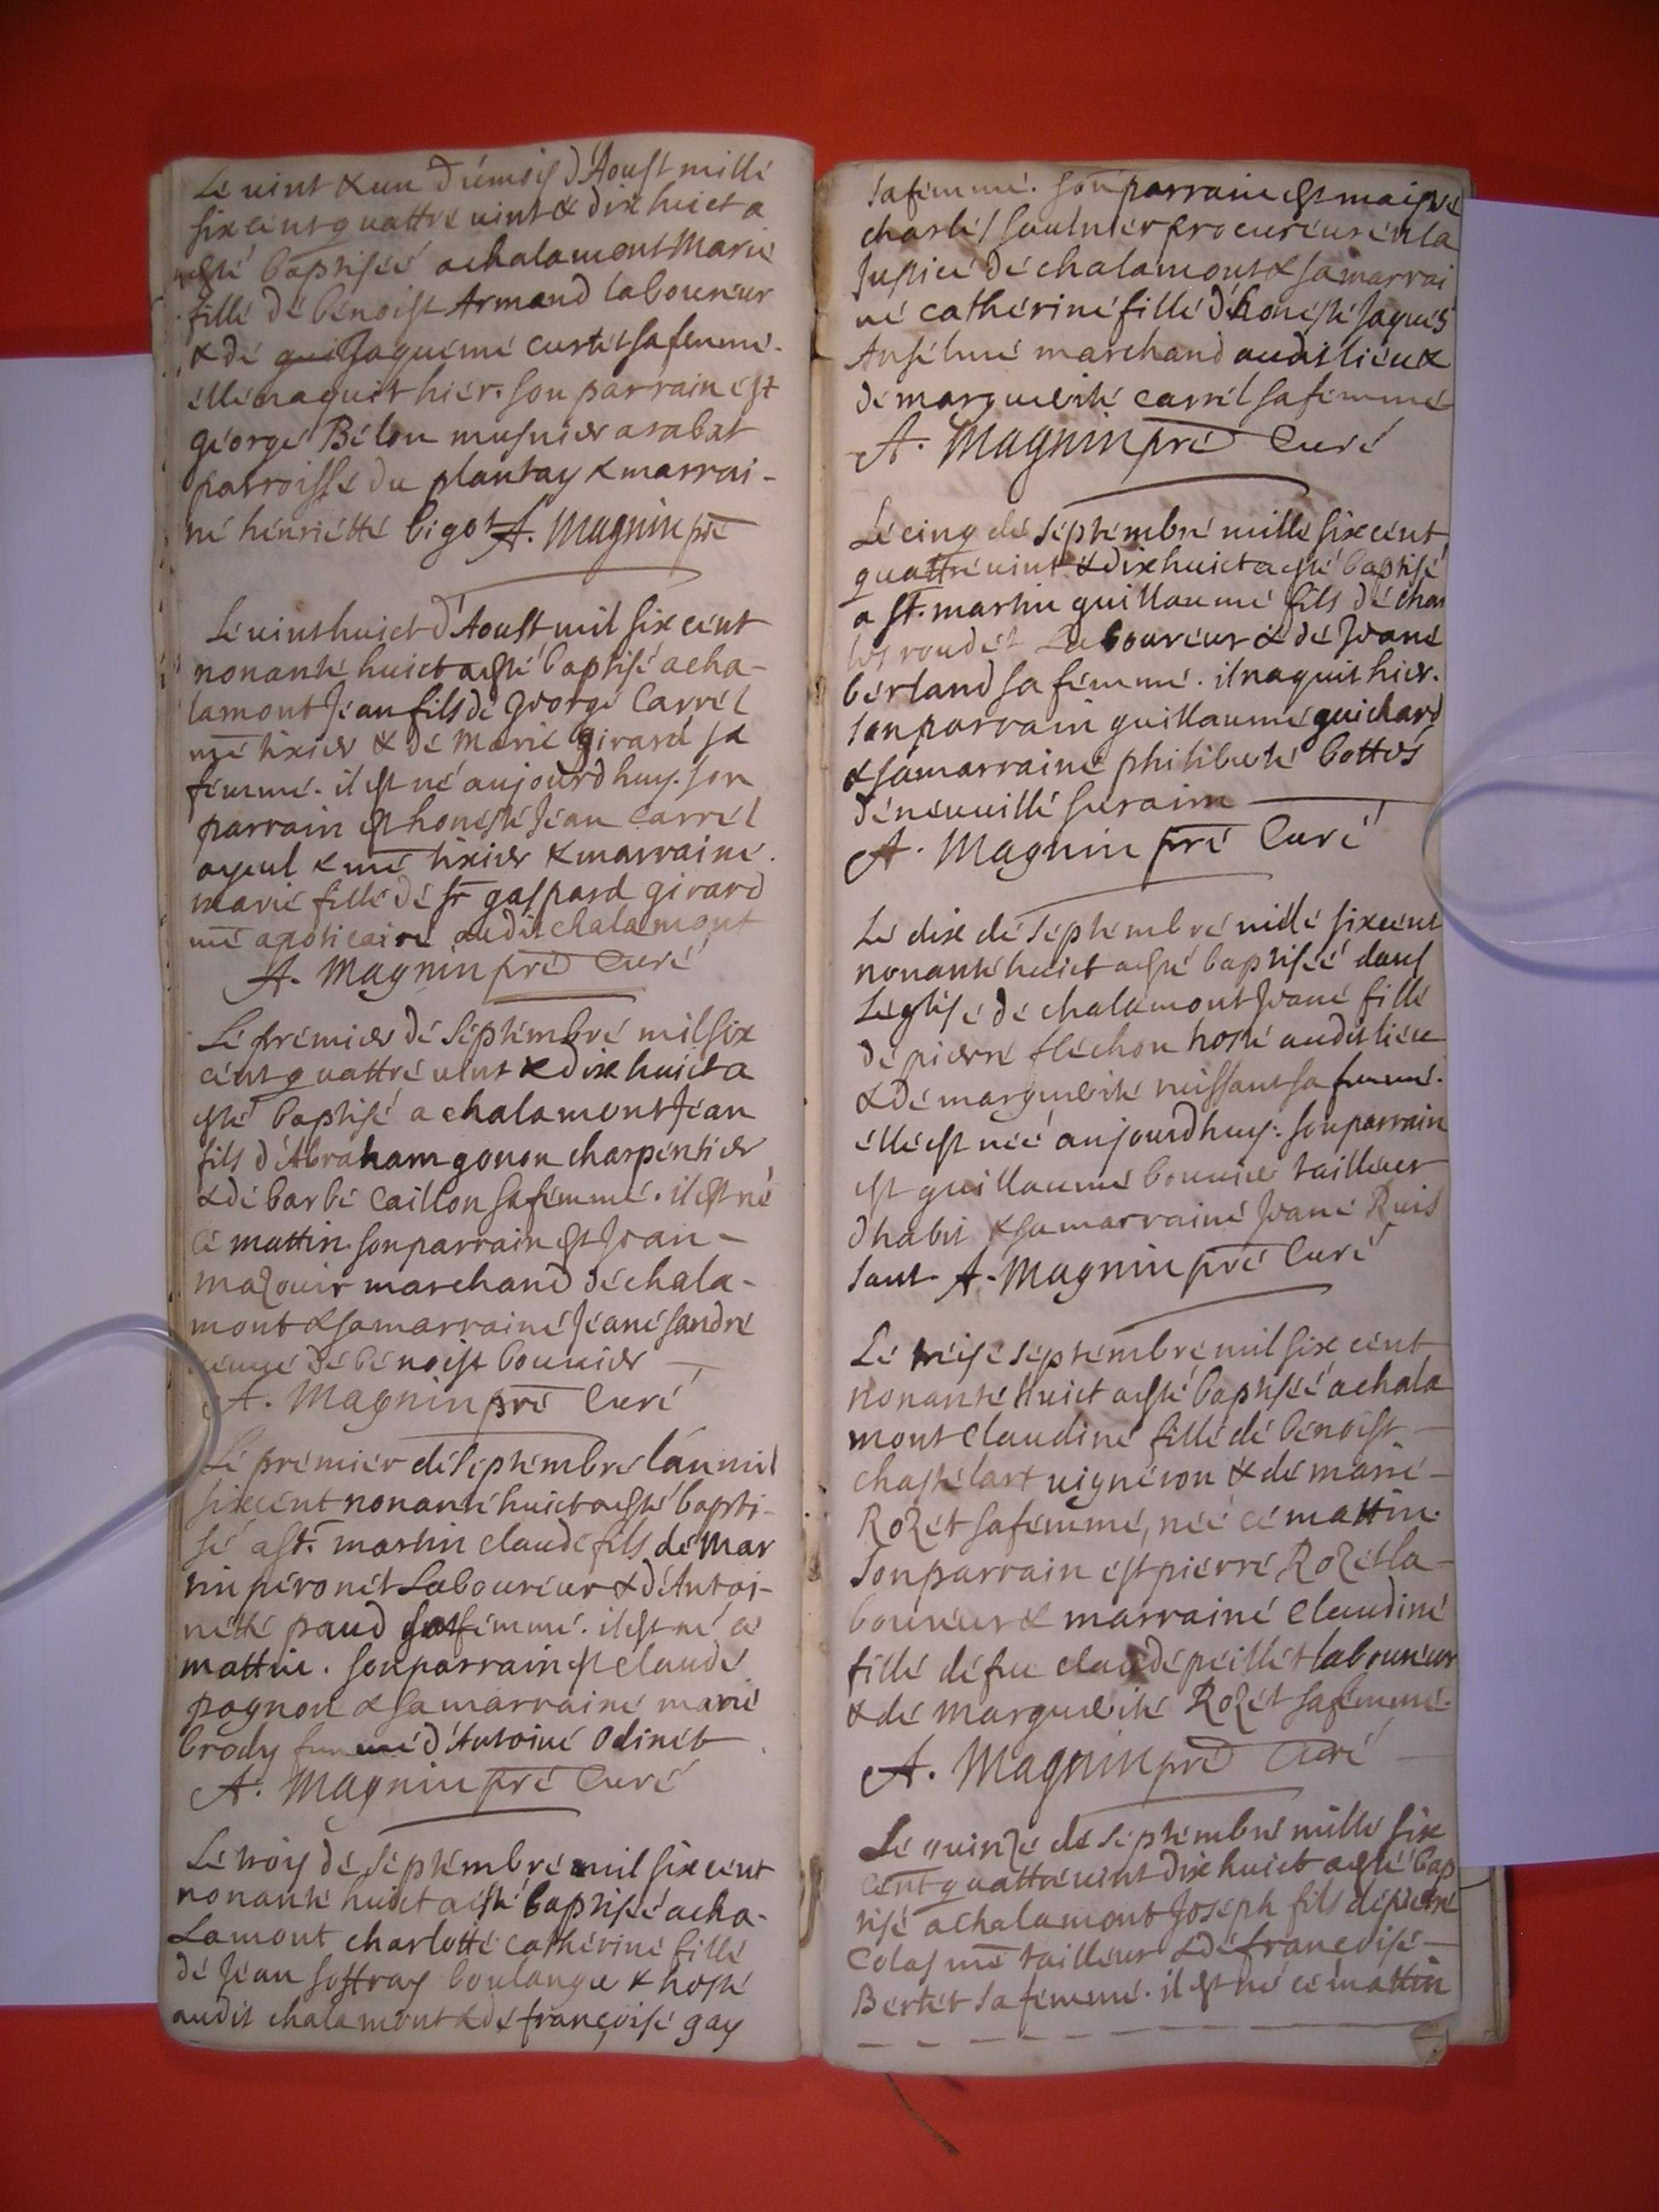 Le vint & un du mois d'Aoust mille
six cent quattre vint & dix huict a
esté baptiséé a chalamont Marie
fille de benoist Armand laboureur
& de Jaqueme curtet sa femme.
elle naquit hier. son parrain est
george Belon musnier a rabat
parroisse du plantay & marrai-
ne henriette bigot A. Magnin pre
Le vint huict d'Aoust mil six cent
nonante huict a esté baptisé a cha-
lamont Jean fils de george Carrel
me tixier & de Marie girard sa
femme. il est né aujourdhuy. son
parrain est honeste Jean Carrel
ayeul & me tixier & marraine
marie fille de sr gaspard girard
me apoticaire audit chalamont
A. Magnin pre Curé
Le premier de septembre mil six
cent quattre vint & dix huict a
esté baptisé a chalamont Jean
fils d'Abraham gonon charpentier
& de barbe Caillon sa femme. il est né
ce mattin. son parrain est Jean -
mazouir marchand de chala-
mont & sa marraine Jeane sandre
veuve de benoist bouvier
A. Magnin pre Curé
Le premier de septembre l'an mil
six cent nonante huict a esté bapti-
sé a st. martin claude fils de Mar
tin peronet Laboureur & d'Antoi-
nette paud sa femme. il est né ce
mattin. son parrain est claude
pognon & sa marraine marie
brody femme d'Antoine Odinet
A. Magnin pre Curé
Le trois de septembre mil six cent
nonante huict a esté baptisée a cha-
Lamont charlotte catherine fille
de Jean sostray boulanger & hoste
audit chalamont & de françoise gay
sa femme. son parrain est maistre
charles saulnier procureur en la
Justice de chalamont & sa marrai
ne catherine fille d'honeste Jaques
Anselme marchand audit lieu &
de marguerite carrel sa femme
A. Magnin pre Curé
Le cinq de septembre mille six cent
quattre vint & dix huict a esté baptisé
a st. martin guillaume fils de char
les roudet Laboureur & de Jeane
berland sa femme. il naquit hier.
son parrain guillaume guichard
& sa marraine philiberte bottes
de neuville sur ain
A. Magnin pre Curé
Le dix de septembre mille six cent
nonante huict a esté baptisée dans
L'eglise de chalamont Jeane fille
de pierre flechon hoste audit lieu
& de marguerite ruissant sa femme.
elle est née aujourdhuy. son parrain
est guillaume bouvier tailleur
dhabit & sa marraine Jeane Ruis
sant A. Magnin pre Curé
Le treise septembre mil six cent
nonante huict a esté baptisée a chala
mont claudine fille de benoist
chastelart vigneron & de marie
Rozet sa femme, née ce mattin.
son parrain est pierre Rozet la-
boureur & marraine claudine
fille de feu claude peillet laboureur
& de marguerite Rozet sa femme.
A. Magnin pre Curé
Le quinze de septembre mille six
cent quattre vint dix huict a esté bap
tisé a chalamont Joseph fils de pierre
Colas me tailleur & de francoise
Bertet sa femme. il est né ce mattin